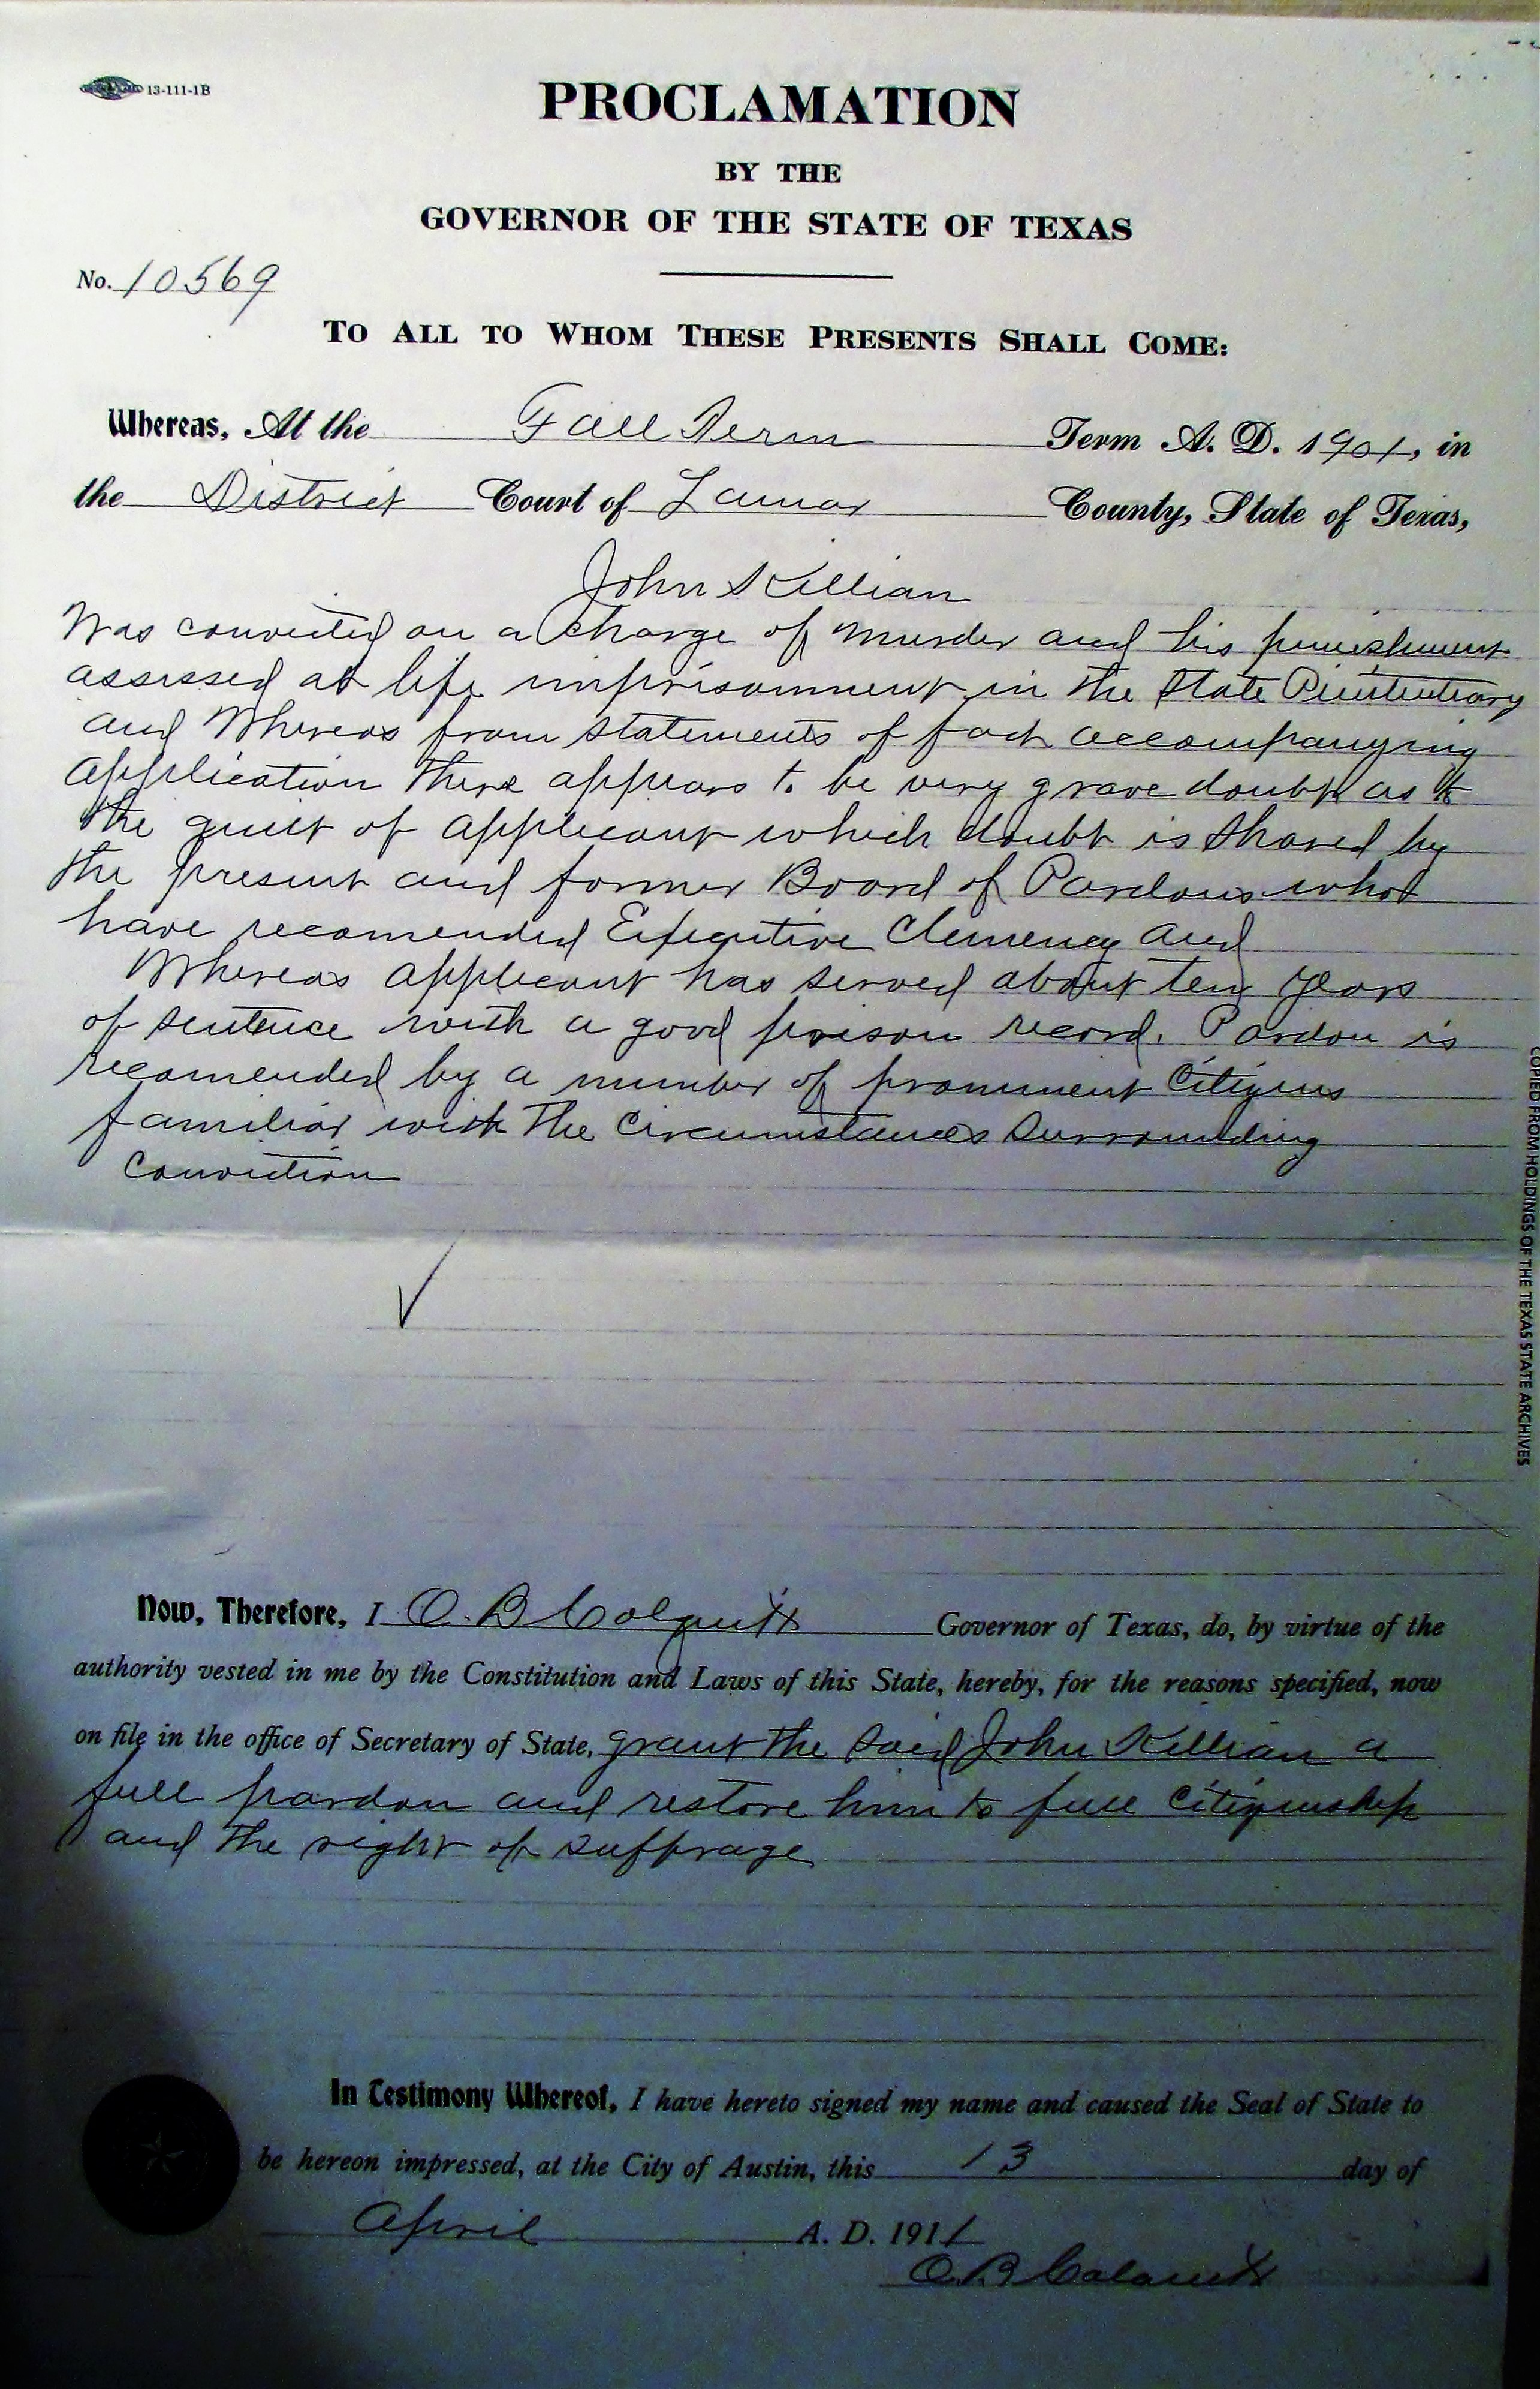 13-111-1B
PROCLAMATION
BY THE
GOVERNOR OF THE STATE OF TEXAS
No. 10569
TO ALL TO WHOM THESE PRESENTS SHALL COME:
Whereas, At the Fall Term Term A. D. 1901, in
the District Court of Lamar County, State of Texas,
John Killian
Was convicted on a charge of murder and his punishment
assessed at life imprisonment in the State Penitentiary
and Whereas from statements of fact accompanying
application there appears to be very grave doubt as to
the guilt of applicant which doubt is shared by
the present and former Board of Pardons who
have recomended Executive Clemency and
Whereas applicant has served about ten years
of sentence with a good prison record. Pardon is
recomended by a number of prominent Citizens
familiar with the circumstances surrounding
conviction
Now, Therefore, I O. B Colquitt Governor of Texas, do, by virtue of the
authority vested in me by the Constitution and Laws of this State, hereby, for the reasons specified, now
on file in the office of Secretary of State, grant the said John Killian a
full pardon and restore him to full citizenship
and the right of suffrage
In Testimony Whereof, I have hereto signed my name and caused the Seal of State to
be hereon impressed, at the City of Austin, this 13 day of
April A. D. 1911
O. B Colquitt
COPIED FROM HOLDINGS OF THE TEXAS STATE ARCHIVES